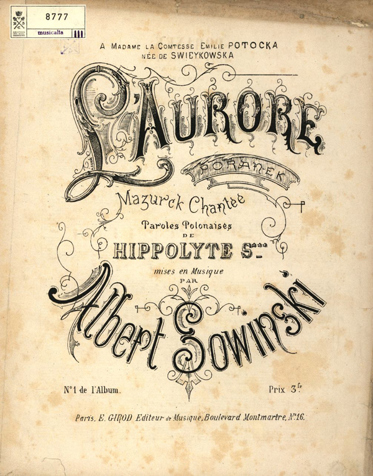 8777
musicalia
A MADAME LA COMTESSE EMILIE POTOCKA
NÉE DE SWIEYKOWSKA
L'AURORE
PORANEK
Mazurck Chantée
Paroles Polonaises
DE
HIPPOLYTE S***
mises en Musique
PAR
Albert Sowinski
N° 1 de l'Album.
Prix 3f
Paris, E. GIROD, Editeur de Musique, Boulevard Montmartre, N° 16.